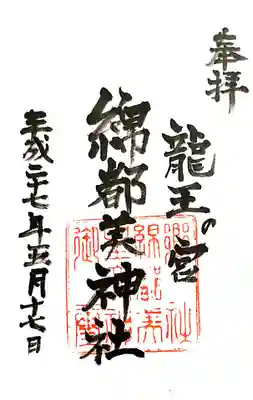 奉拝
龍王の宮
綿都美神社
平成二十七年五月十七日